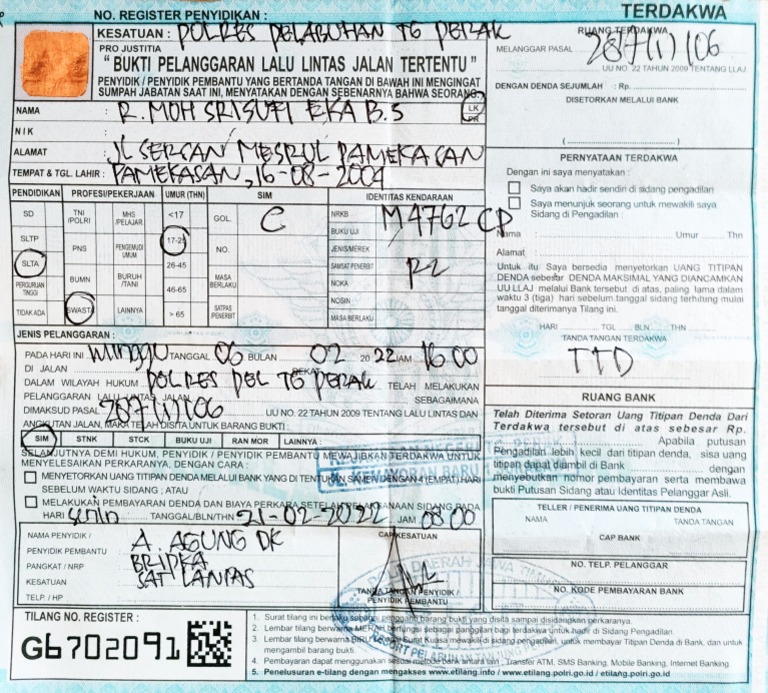 NO. REGISTER PENYIDIKAN :
TERDAKWA
KESATUAN : POLRES PELABUHAN TG PERAK
PRO JUSTITIA
" BUKTI PELANGGARAN LALU LINTAS JALAN TERTENTU "
PENYIDIK / PENYIDIK PEMBANTU YANG BERTANDA TANGAN DI BAWAH INI MENGINGAT
SUMPAH JABATAN SAAT INI, MENYATAKAN DENGAN SEBENARNYA BAHWA SEORANG
NAMA : R. MOH SRISUFI EKA B.S LK PR
NIK :
ALAMAT : JL SERSAN MESRUL PAMEKASAN
TEMPAT & TGL. LAHIR : PAMEKASAN, 16-08-2004
PENDIDIKAN PROFESI/PEKERJAAN UMUR (THN) SIM IDENTITAS KENDARAAN
SD TNI/POLRI MHS/PELAJAR <17 GOL. C NRKB M 4762 CP
SLTP PNS PENGEMUDI UMUM 17-25 NO. BUKU UJI
JENIS/MEREK R2
SLTA 26-45 SAMSAT PENERBIT
PERGURUAN TINGGI BUMN BURUH/TANI 46-65 MASA BERLAKU NOKA
NOSIN
TIDAK ADA SWASTA LAINNYA > 65 SATPAS PENERBIT MASA BERLAKU
JENIS PELANGGARAN :
PADA HARI INI Minggu TANGGAL 06 BULAN 02 2022 JAM 16.00
DI JALAN
DEKAT
DALAM WILAYAH HUKUM POLRES PEL TG PERAK TELAH MELAKUKAN
PELANGGARAN LALU LINTAS JALAN SEBAGAIMANA
DIMAKSUD PASAL 287(1)/106 UU NO. 22 TAHUN 2009 TENTANG LALU LINTAS DAN
ANGKUTAN JALAN, MAKA TELAH DISITA UNTUK BARANG BUKTI :
SIM STNK STCK BUKU UJI RAN MOR LAINNYA :
SELANJUTNYA DEMI HUKUM, PENYIDIK / PENYIDIK PEMBANTU MEWAJIBKAN TERDAKWA UNTUK
MENYELESAIKAN PERKARANYA, DENGAN CARA :
MENYETORKAN UANG TITIPAN DENDA MELALUI BANK YANG DI TENTUKAN 4 (EMPAT) HARI
SEBELUM WAKTU SIDANG ; ATAU
MELAKUKAN PEMBAYARAN DENDA DAN BIAYA PERKARA SETELAH PELAKSANAAN SIDANG PADA
HARI Senin TANGGAL/BLN/THN 21-02-2022 JAM 08.00
NAMA PENYIDIK / PENYIDIK PEMBANTU : A. AGUNG DK
PANGKAT / NRP : BRIPKA
KESATUAN : SAT LANTAS
TELP. / HP :
CAP KESATUAN
TANDA TANGAN PENYIDIK /
PENYIDIK PEMBANTU
TILANG NO. REGISTER :
G6702091
RUANG TERDAKWA
MELANGGAR PASAL 287(1)/106
UU NO. 22 TAHUN 2009 TENTANG LLAJ
DENGAN DENDA SEJUMLAH : Rp.
DISETORKAN MELALUI BANK
PERNYATAAN TERDAKWA
Dengan ini saya menyatakan :
Saya akan hadir sendiri di sidang pengadilan
Saya menunjuk seorang untuk mewakili saya
Sidang di Pengadilan :
Nama : Umur Thn
Alamat :
Untuk itu Saya bersedia menyetorkan UANG TITIPAN
DENDA sebesar DENDA MAKSIMAL YANG DIANCAMKAN
UU LLAJ melalui Bank tersebut di atas, paling lama dalam
waktu 3 (tiga) hari sebelum tanggal sidang terhitung mulai
tanggal diterimanya Tilang ini.
HARI TGL BLN THN
TANDA TANGAN TERDAKWA
TTD
RUANG BANK
Telah Diterima Setoran Uang Titipan Denda Dari
Terdakwa tersebut di atas sebesar Rp.
Apabila putusan
Pengadilan lebih kecil dari titipan denda, sisa uang
titipan dapat diambil di Bank dengan
menyebutkan nomor pembayaran serta membawa
bukti Putusan Sidang atau Identitas Pelanggar Asli.
TELLER / PENERIMA UANG TITIPAN DENDA
NAMA TANDA TANGAN
CAP BANK
NO. TELP. PELANGGAR
NO. KODE PEMBAYARAN BANK
1. Surat tilang ini berlaku sebagai pengganti barang bukti yang disita sampai disidangkan perkaranya.
2. Lembar tilang berwarna MERAH berfungsi sebagai panggilan bagi terdakwa untuk hadir di Sidang Pengadilan.
3. Lembar tilang berwarna BIRU Surat Kuasa mewakili di sidang pengadilan, untuk membayar Titipan Denda di Bank, dan untuk
mengambil barang bukti.
4. Pembayaran dapat menggunakan sebagai metode bank antara lain : Transfer ATM, SMS Banking, Mobile Banking, Internet Banking
5. Penelusuran e-tilang dengan mengakses www.etilang.info / www.etilang.polri.go.id / etilang.polri.go.id